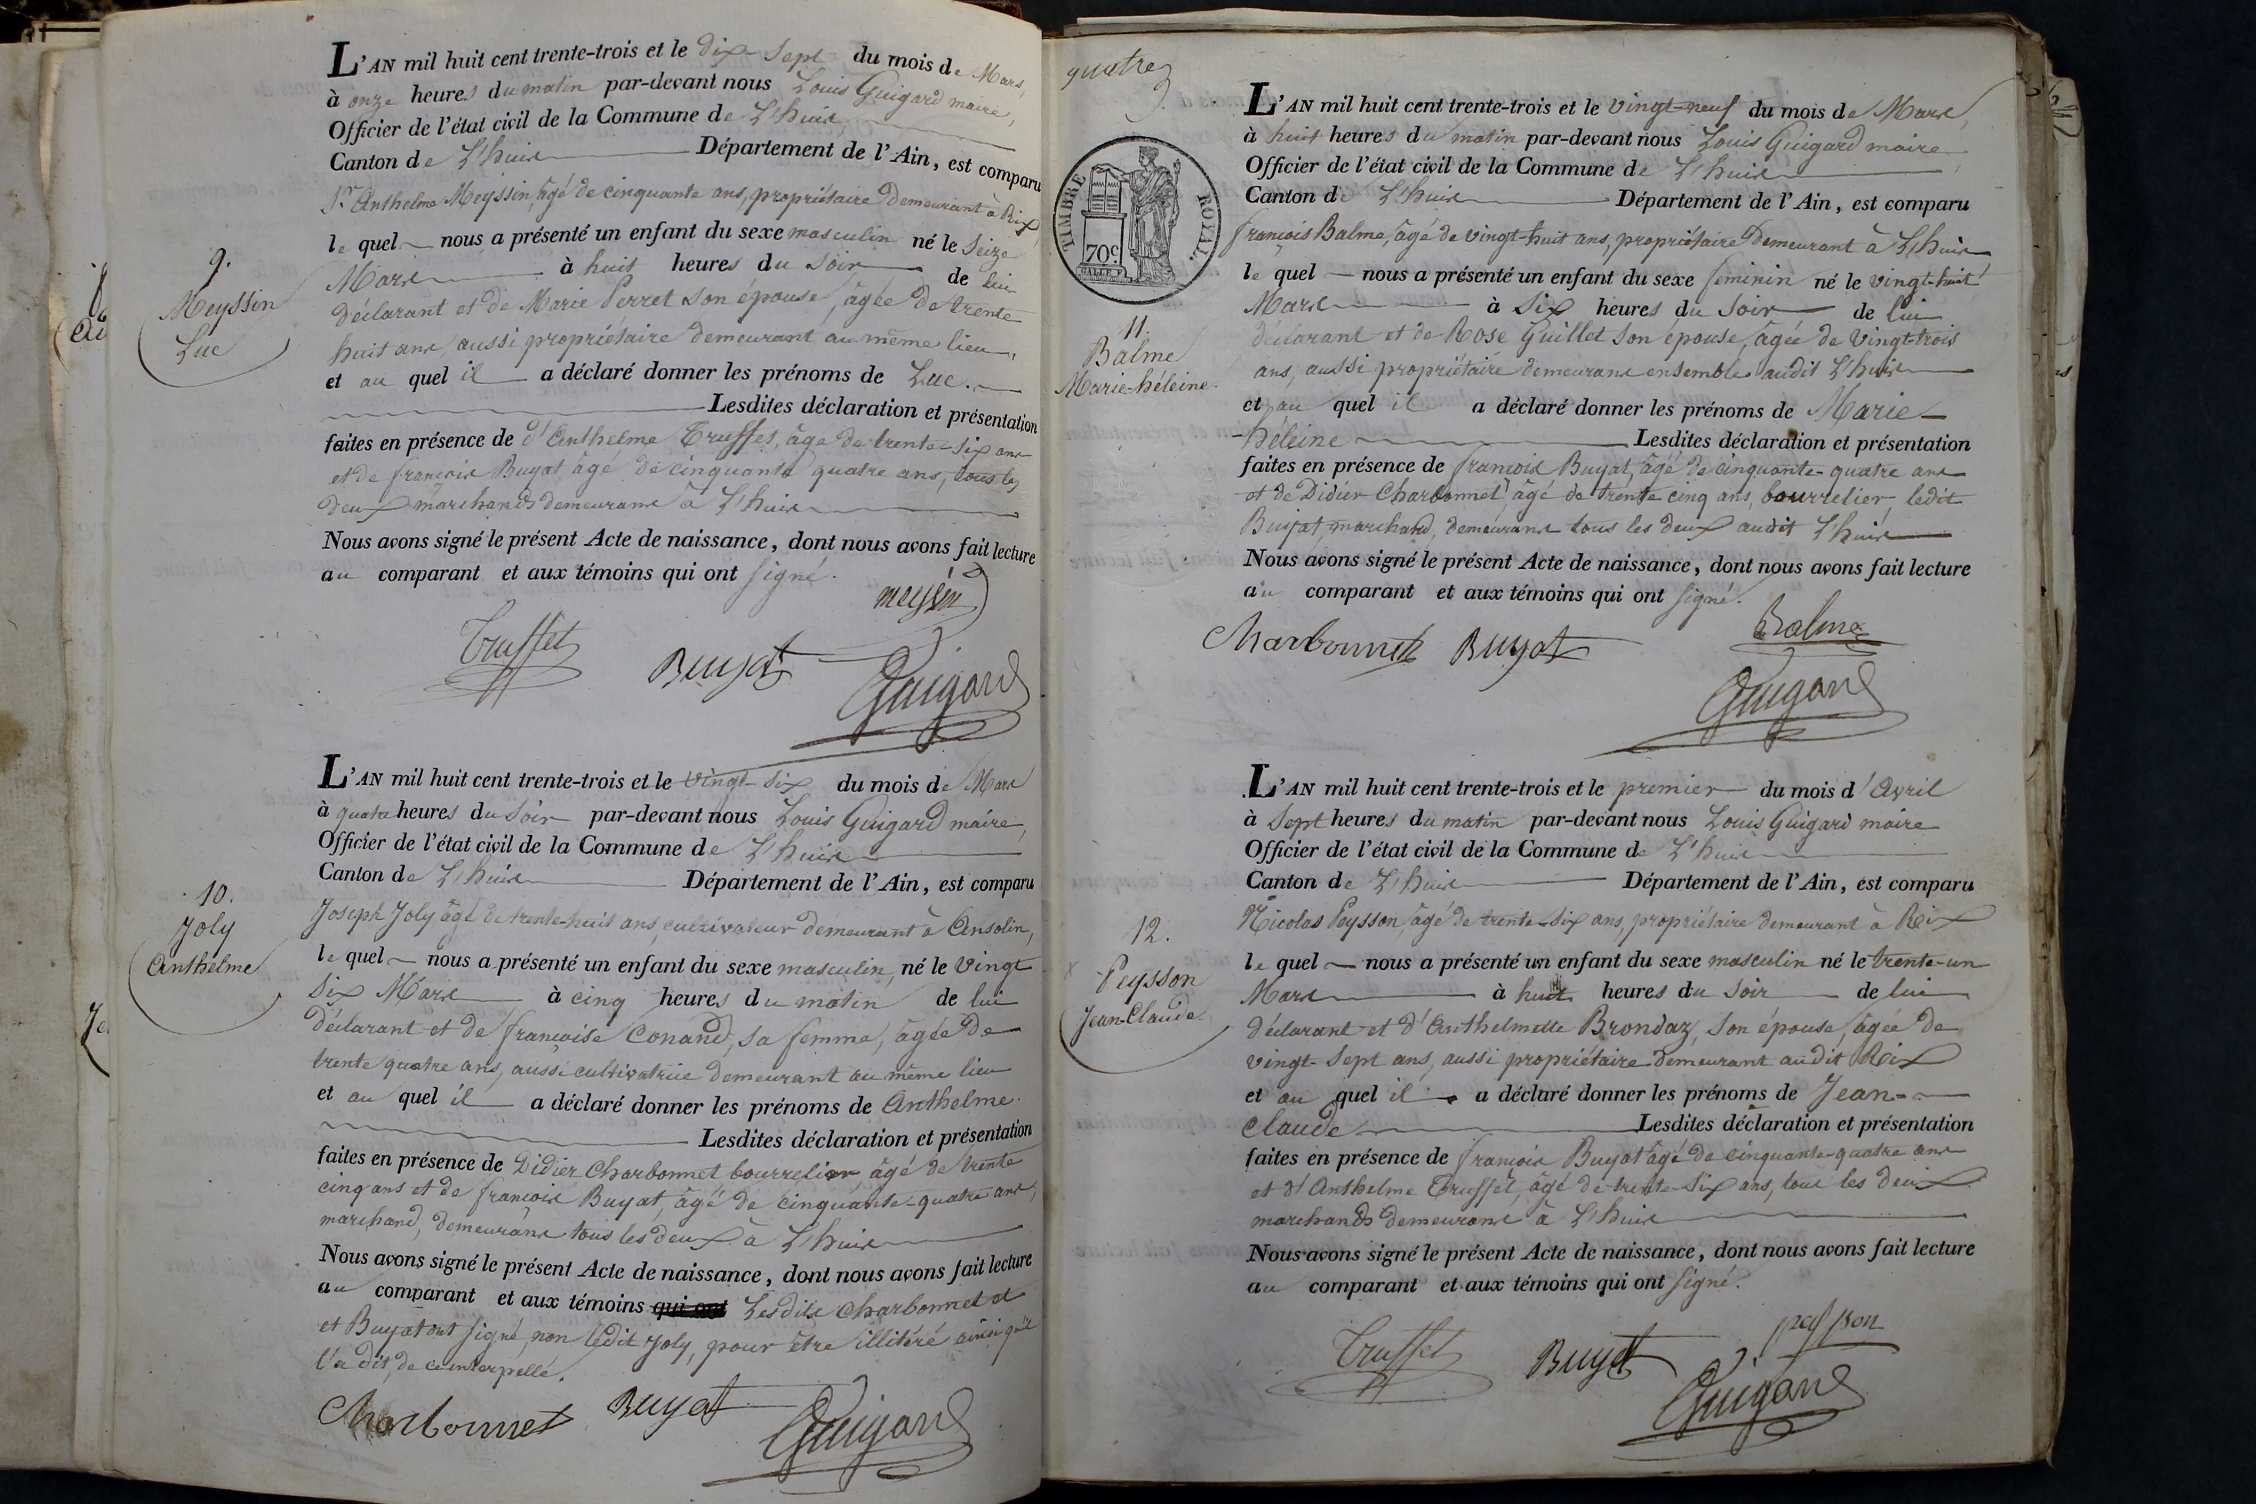 L'AN mil huit cent trente-trois et le dix-sept du mois de Mars,
à onze heures du matin par-devant nous Louis Guigard maire,
Officier de l'état civil de la Commune de L'huis
Canton de L'huis Département de l'Ain, est comparu
Sr. Anthelme Meyssin, âgé de cinquante ans, propriétaire demeurant à Rix
le quel nous a présenté un enfant du sexe masculin né le Seize
Mars à huit heures du Soir de lui
déclarant et de Marie Perret son épouse, âgée de trente
huit ans, aussi propriétaire demeurant au même lieu,
et au quel il a déclaré donner les prénoms de Luc.
Lesdites déclaration et présentation
faites en présence de d'Anthelme Truffet, âgé de trente-six ans
et de françois Buyat, âgé de cinquante quatre ans, tous les
deux marchands demeurans à L'huis
Nous avons signé le présent Acte de naissance, dont nous avons fait lecture
au comparant et aux témoins qui ont signé.
9.
Meyssin
Luc
meysin
Truffet
Buyat
Guigard
L'AN mil huit cent trente-trois et le vingt-six du mois de Mars
à quatre heures du Soir par-devant nous Louis Guigard maire,
Officier de l'état civil de la Commune de L'huis
Canton de L'huis Département de l'Ain, est comparu
Joseph Joly âgé de trente-huit ans, cultivateur demeurant à Ansolin,
le quel nous a présenté un enfant du sexe masculin, né le vingt
Six Mars à cinq heures du matin de lui
déclarant et de françoise Conand, sa femme, âgée de
trente quatre ans, aussi cultivatrice demeurant au même lieu
et au quel il a déclaré donner les prénoms de Anthelme.
Lesdites déclaration et présentation
faites en présence de Didier Charbonnet bourrelier, âgé de trente
cinq ans et de françois Buyat, âgé de cinquante-quatre ans,
marchand, demeurans tous les deux à L'huis
Nous avons signé le présent Acte de naissance, dont nous avons fait lecture
au comparant et aux témoins qui ont Lesdits Charbonnet et
et Buyat ont signé, non ledit Joly, pour être illitéré ainsi qu'il
l'a dit, de ce interpellé.
10.
Joly
Anthelme
Charbonnet
Buyat
Guigard
quatre
TIMBRE ROYAL.
70c.
L'AN mil huit cent trente-trois et le vingt-neuf du mois de Mars,
à huit heures du matin par-devant nous Louis Guigard maire
Officier de l'état civil de la Commune de L'huis
Canton de L'huis Département de l'Ain, est comparu
françois Balme, âgé de vingt-huit ans, propriétaire demeurant à L'huis
le quel nous a présenté un enfant du sexe féminin né le vingt-huit
Mars à Six heures du Soir de lui
déclarant et de Rose Guillet son épouse, âgée de vingt-trois
ans, aussi propriétaire demeurans ensemble audit L'huis
et au quel il a déclaré donner les prénoms de Marie
-héleine Lesdites déclaration et présentation
faites en présence de françois Buyat, âgé de cinquante-quatre ans
et de Didier Charbonnet, âgé de trente cinq ans, bourrelier, ledit
Buyat, marchand, demeurans tous les deux audit L'huis
Nous avons signé le présent Acte de naissance, dont nous avons fait lecture
au comparant et aux témoins qui ont signé.
11.
Balme
Marie-héleine
Balme
Charbonnet
Buyat
Guigard
L'AN mil huit cent trente-trois et le premier du mois d'Avril
à Sept heures du matin par-devant nous Louis Guigard maire
Officier de l'état civil de la Commune de L'huis
Canton de L'huis Département de l'Ain, est comparu
Nicolas Peysson, âgé de trente-six ans, propriétaire demeurant à Rix
le quel nous a présenté un enfant du sexe masculin né le trente-un
Mars à huit heures du Soir de lui
déclarant et d'Anthelmette Brondaz, son épouse, âgée de
vingt-sept ans, aussi propriétaire demeurant audit Rix
et au quel il a déclaré donner les prénoms de Jean-
Claude Lesdites déclaration et présentation
faites en présence de françois Buyat âgé de cinquante-quatre ans
et d'Anthelme Truffet, âgé de trente-six ans, tous les deux
marchands demeurans à L'huis
Nous avons signé le présent Acte de naissance, dont nous avons fait lecture
au comparant et aux témoins qui ont signé.
12.
Peysson
Jean-Claude
peysson
Truffet
Buyat
Guigard